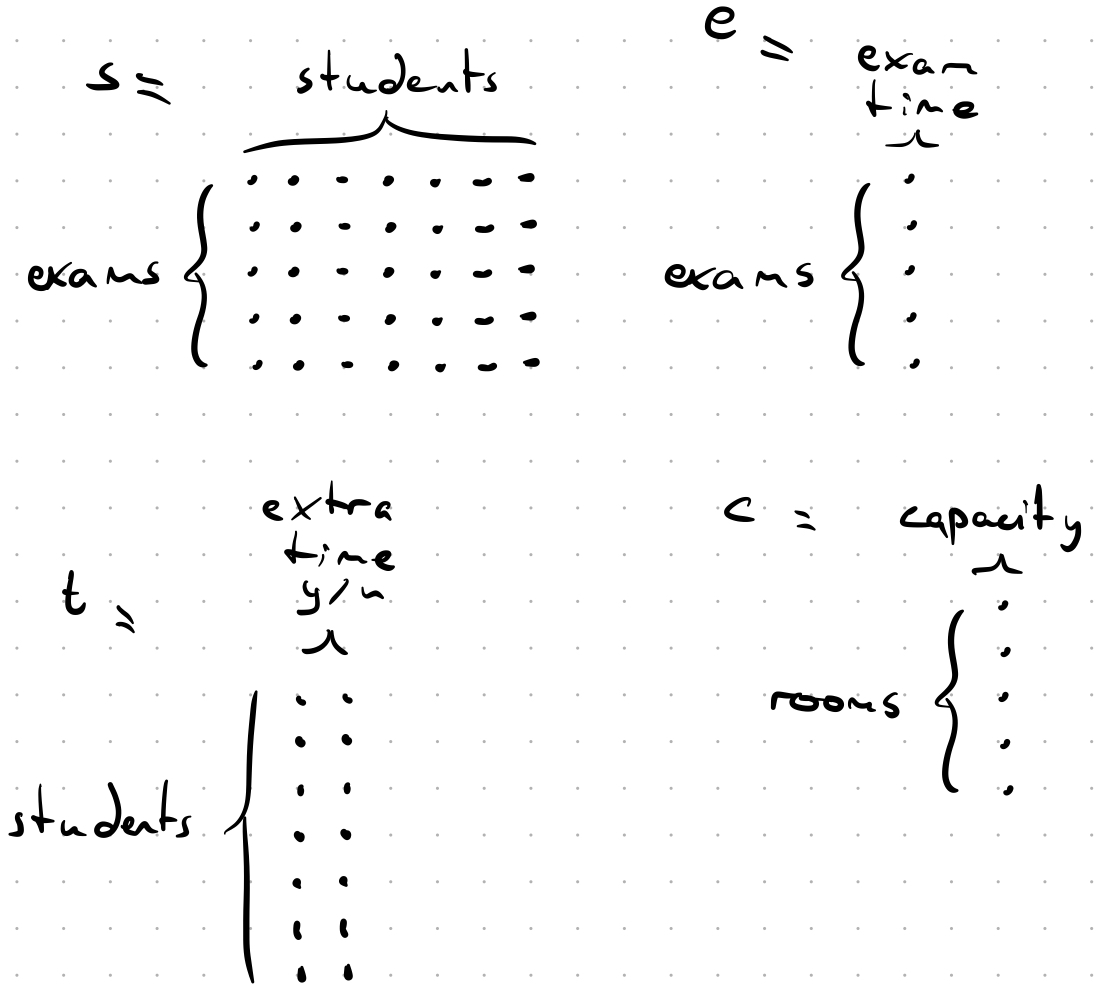 s =
students
exams
e =
exam
time
exams
t =
extra
time
y/n
students
c =
capacity
rooms